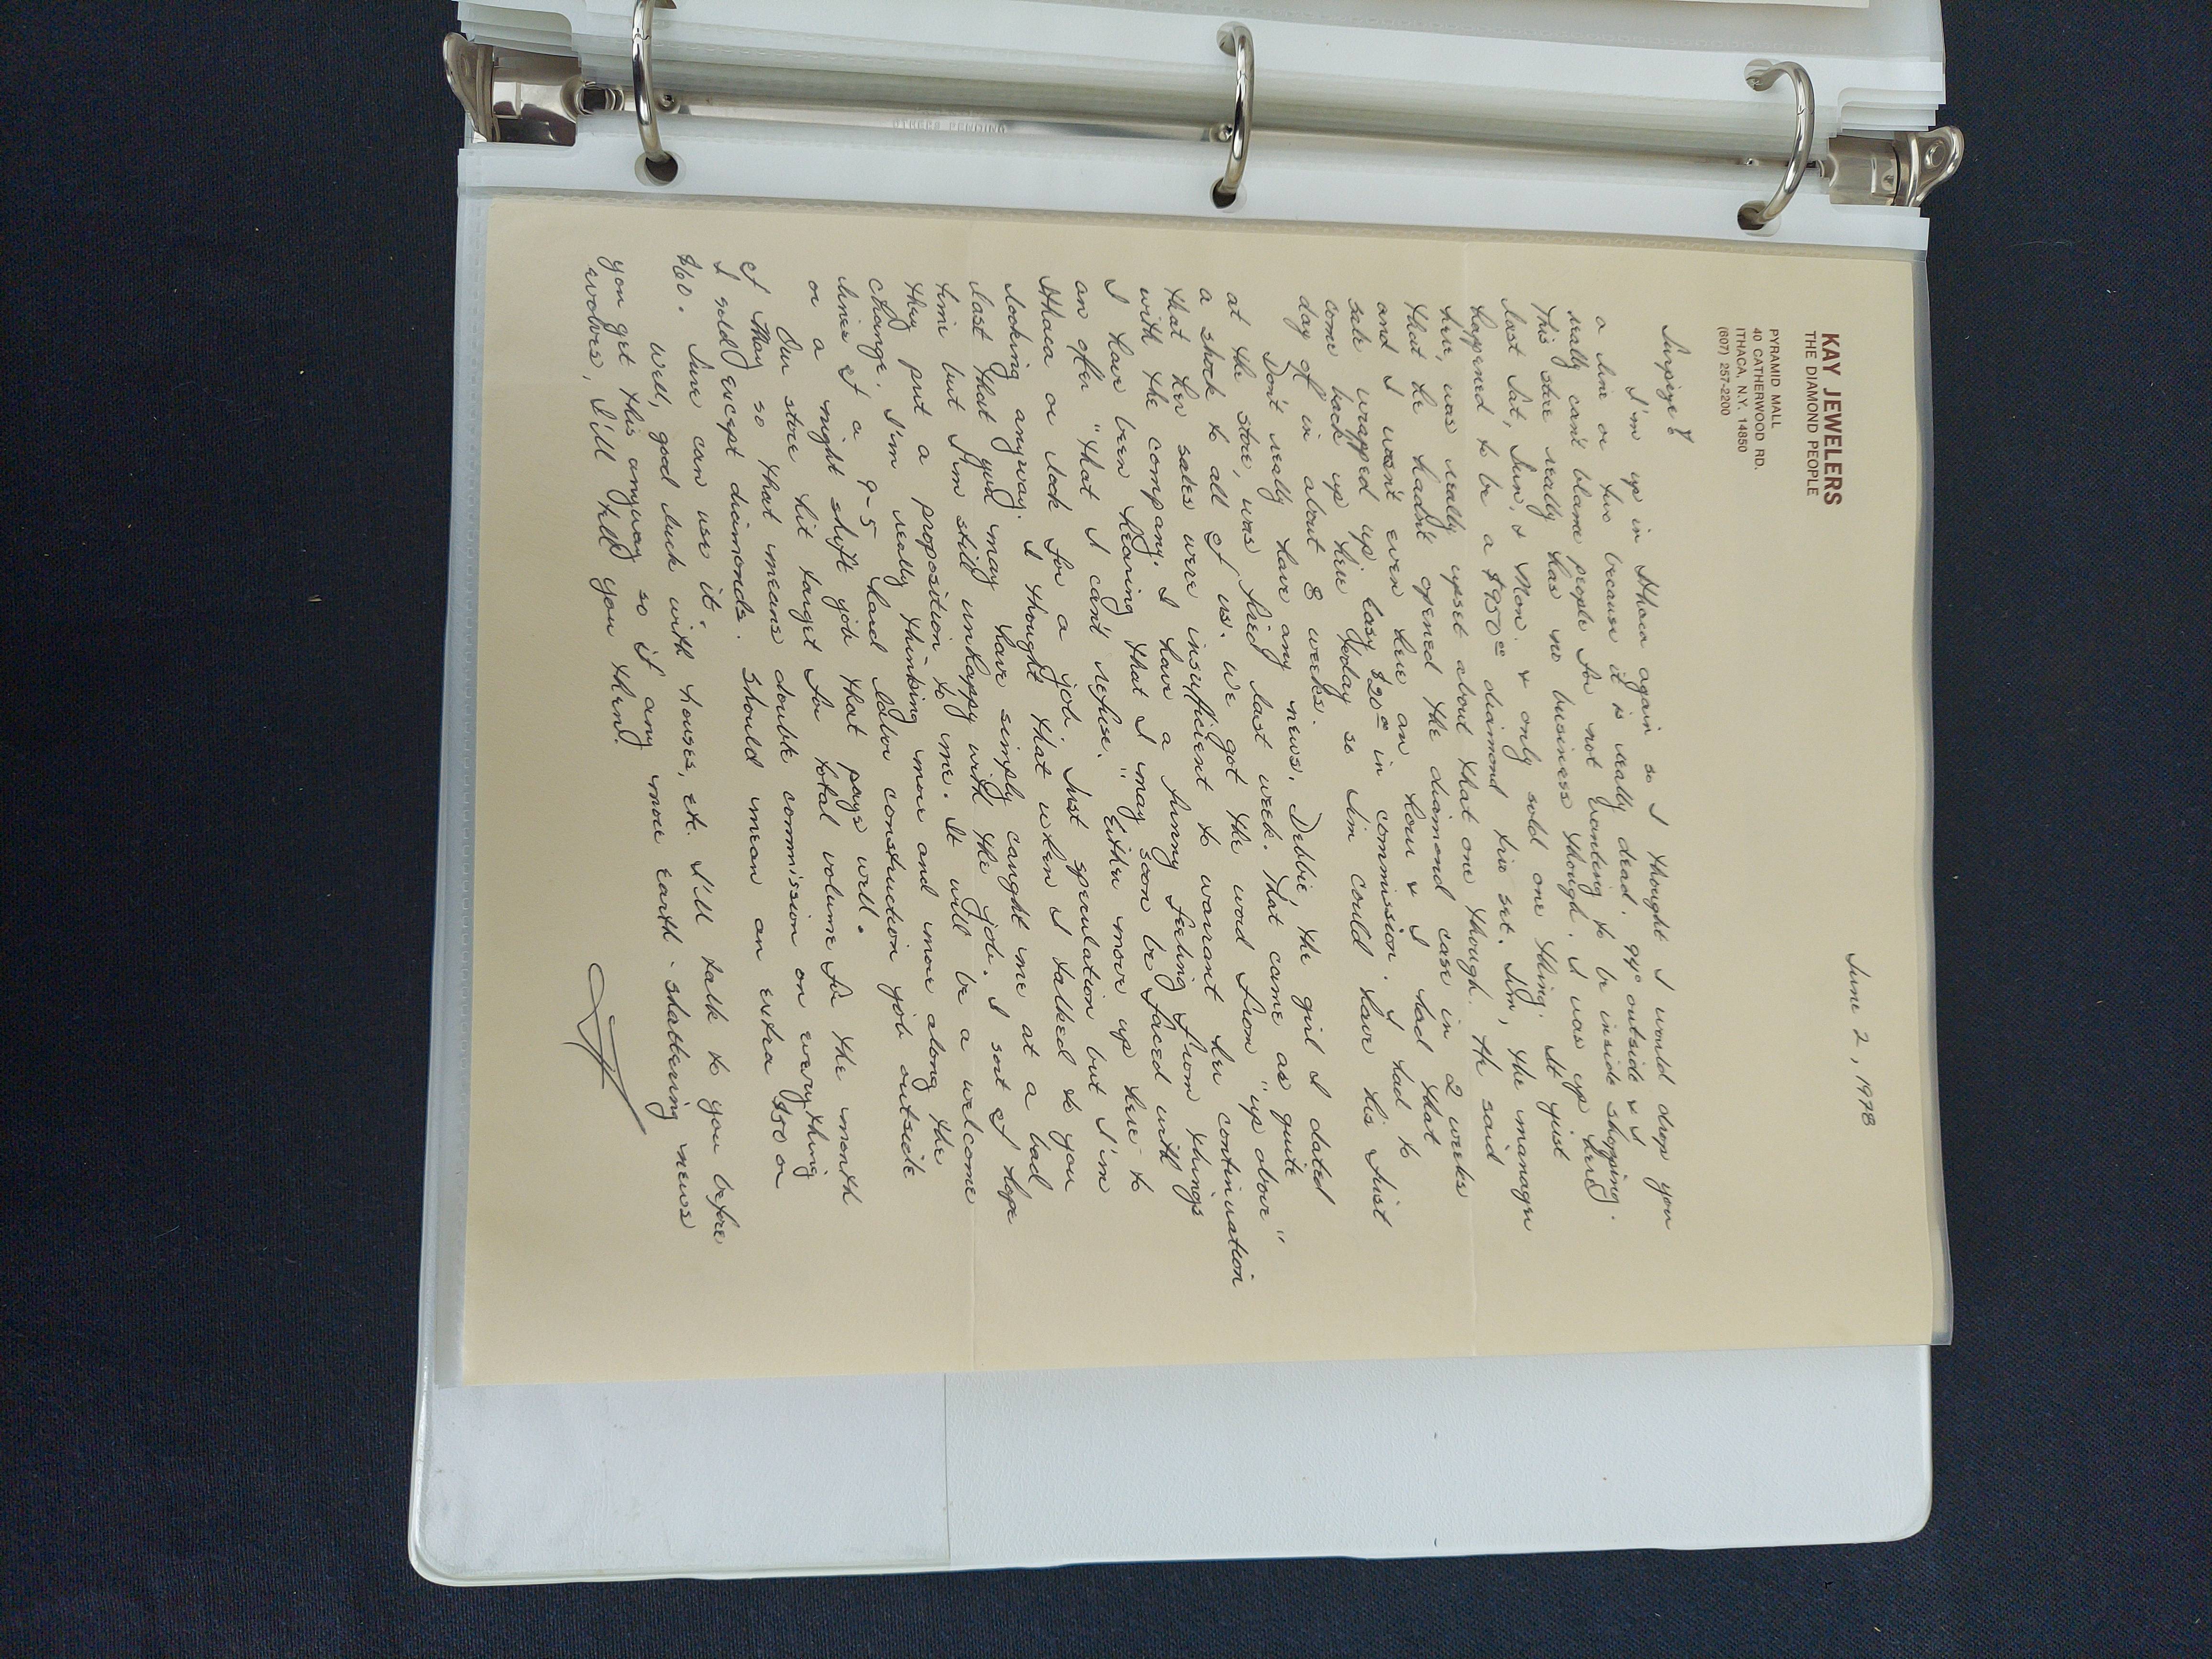 June 2, 1978
KAY JEWELERS
THE DIAMOND PEOPLE
PYRAMID MALL
40 CATHERWOOD RD.
ITHACA, N.Y. 14850
(607) 257-2200
Surprize!
I'm up in Ithaca again so I thought I would drop you
a line or two because it is really dead. 94° outside & I
really can't blame people for not wanting to be inside shopping.
This store really has no business though. I was up here
last Sat, Sun, & Mon. & only sold one thing. It just
happened to be a $950.00 diamond trio set. Jim, the manager
here, was really upset about that one though. He said
that he hadn't opened the diamond case in 2 weeks
and I wasn't even here an hour & I had that
sale wrapped up. Easy $20.00 in commission. I had to
come back up here today so Jim could have his first
day off in about 8 weeks.
Don't really have any news. Debbie, the girl I dated
at the store, was fired last week. That came as quite
a shock to all of us. We got the word from "up above"
that her sales were insufficient to warrant her continuation
with the company. I have a funny feeling from things
I have been hearing that I may soon be faced with
an offer "that I can't refuse." Either move up here to
Ithaca or look for a job. Just speculation but I'm
looking anyway. I thought that when I talked to you
last that you may have simply caught me at a bad
time but I'm still unhappy with the job. I sort of hope
they put a proposition to me. It will be a welcome
change. I'm really thinking more and more along the
lines of a 9-5 hard labor construction job outside
or a night shift job that pays well.
Our store hit target for total volume for the month
of May so that means double commission on everything
I sold except diamonds. Should mean an extra $50 or
$60. Sure can use it.
Well, good luck with houses, etc. I'll talk to you before
you get this anyway so if any more earth-shattering news
evolves, I'll tell you then.